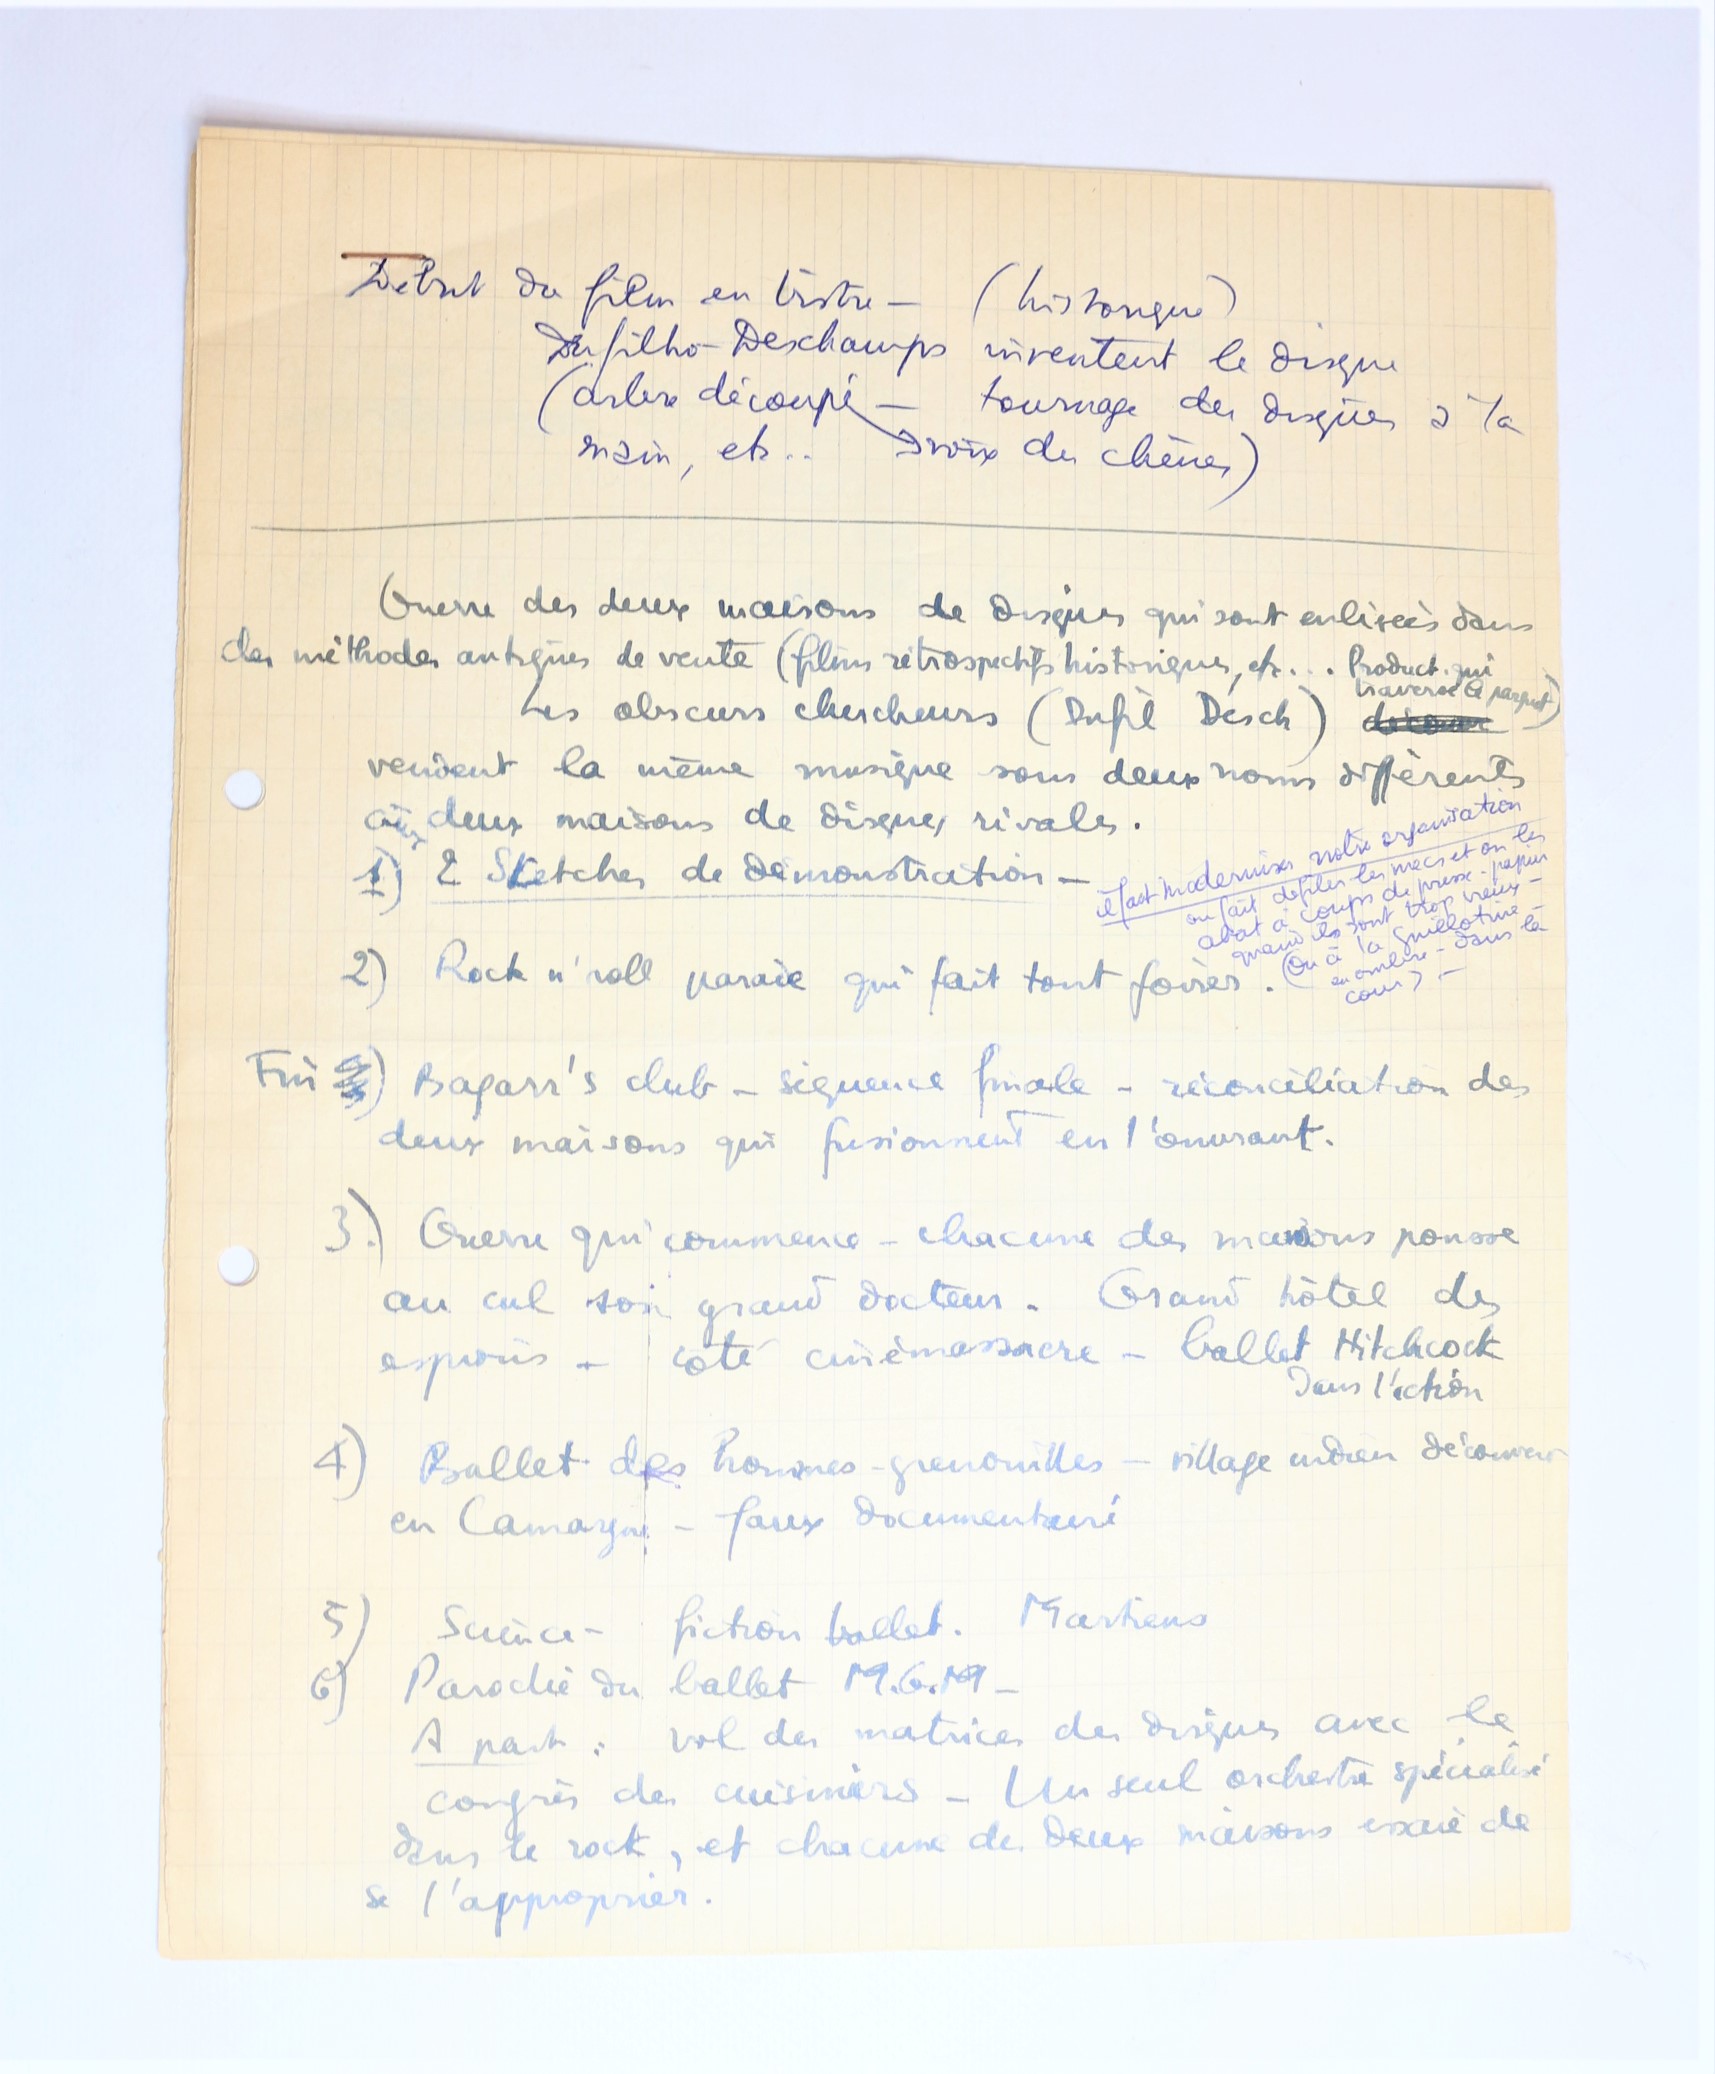 Début du film en bistre — (historique)
Dufilho-Deschamps inventent le disque
(arbre découpé — tournage des disques à la
main, etc.. → noix des chênes)
Guerre des deux maisons de disques qui sont enlisées dans
des méthodes antiques de vente (films rétrospectifs historiques, etc... Product. qui
traverse le parquet)
Les obscurs chercheurs (Dufil Desch)
vendent la même musique sous deux noms différents
aux deux maisons de disques rivales.
1) 2 Sketches de démonstration —
il faut moderniser notre organisation
on fait défiler les mecs et on les
abat à coups de presse-papier
quand ils sont trop vieux —
(Ou à la guillotine —
en ombre — dans la
cour) —
2) Rock n' roll paraît qui fait tout foirer.
Fin ) Bagarr's club — séquence finale — réconciliation des
deux maisons qui fusionnent en l'ouvrant.
3.) Guerre qui commence — chacune des maisons pousse
au cul son grand docteur. Grand hôtel des
espions — côté cinémassacre — ballet Hitchcock
dans l'action
4) Ballet des hommes-grenouilles — village indien découvert
en Camargue — faux documentaire
5) Science-fiction ballet. Martiens
6) Parodie du ballet M.G.M —
A part : vol des matrices des disques avec le
congrès des cuisiniers — Un seul orchestre spécialisé
dans le rock, et chacune des deux maisons essaie de
se l'approprier.